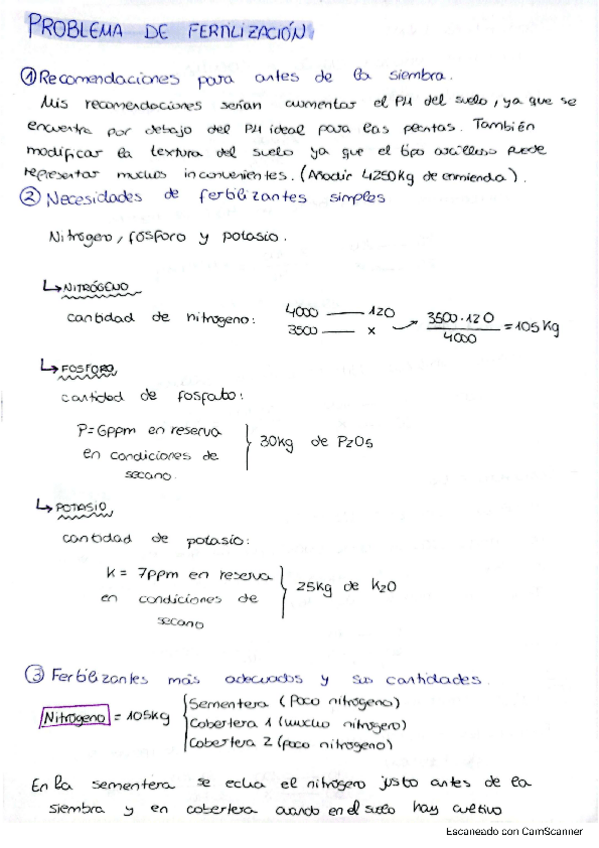 PROBLEMA DE FERTILIZACIÓN
① Recomendaciones para antes de la siembra.
Mis recomendaciones serían aumentar el PH del suelo, ya que se
encuentra por debajo del PH ideal para las plantas. También
modificar la textura del suelo ya que el tipo arcilloso puede
representar muchos inconvenientes. (Añadir 4250Kg de enmienda).
② Necesidades de fertilizantes simples
Nitrógeno, fósforo y potasio.
↳ NITRÓGENO
cantidad de nitrogeno: 4000 —— 120
3500 —— x → 3500·120 / 4000 = 105 Kg
↳ FOSFORO
cantidad de fosfato:
P = 6ppm en reserva
en condiciones de
secano. } 30kg de P2O5
↳ POTASIO
cantidad de potasio:
K = 7ppm en reserva
en condiciones de
secano } 25Kg de K2O
③ Fertilizantes más adecuados y sus cantidades.
Nitrogeno = 105kg { Sementera (Poco nitrógeno)
Cobertera 1 (mucho nitrógeno)
Cobertera 2 (poco nitrógeno)
En la sementera se echa el nitrógeno justo antes de la
siembra y en cobertera cuando en el suelo hay cultivo
Escaneado con CamScanner